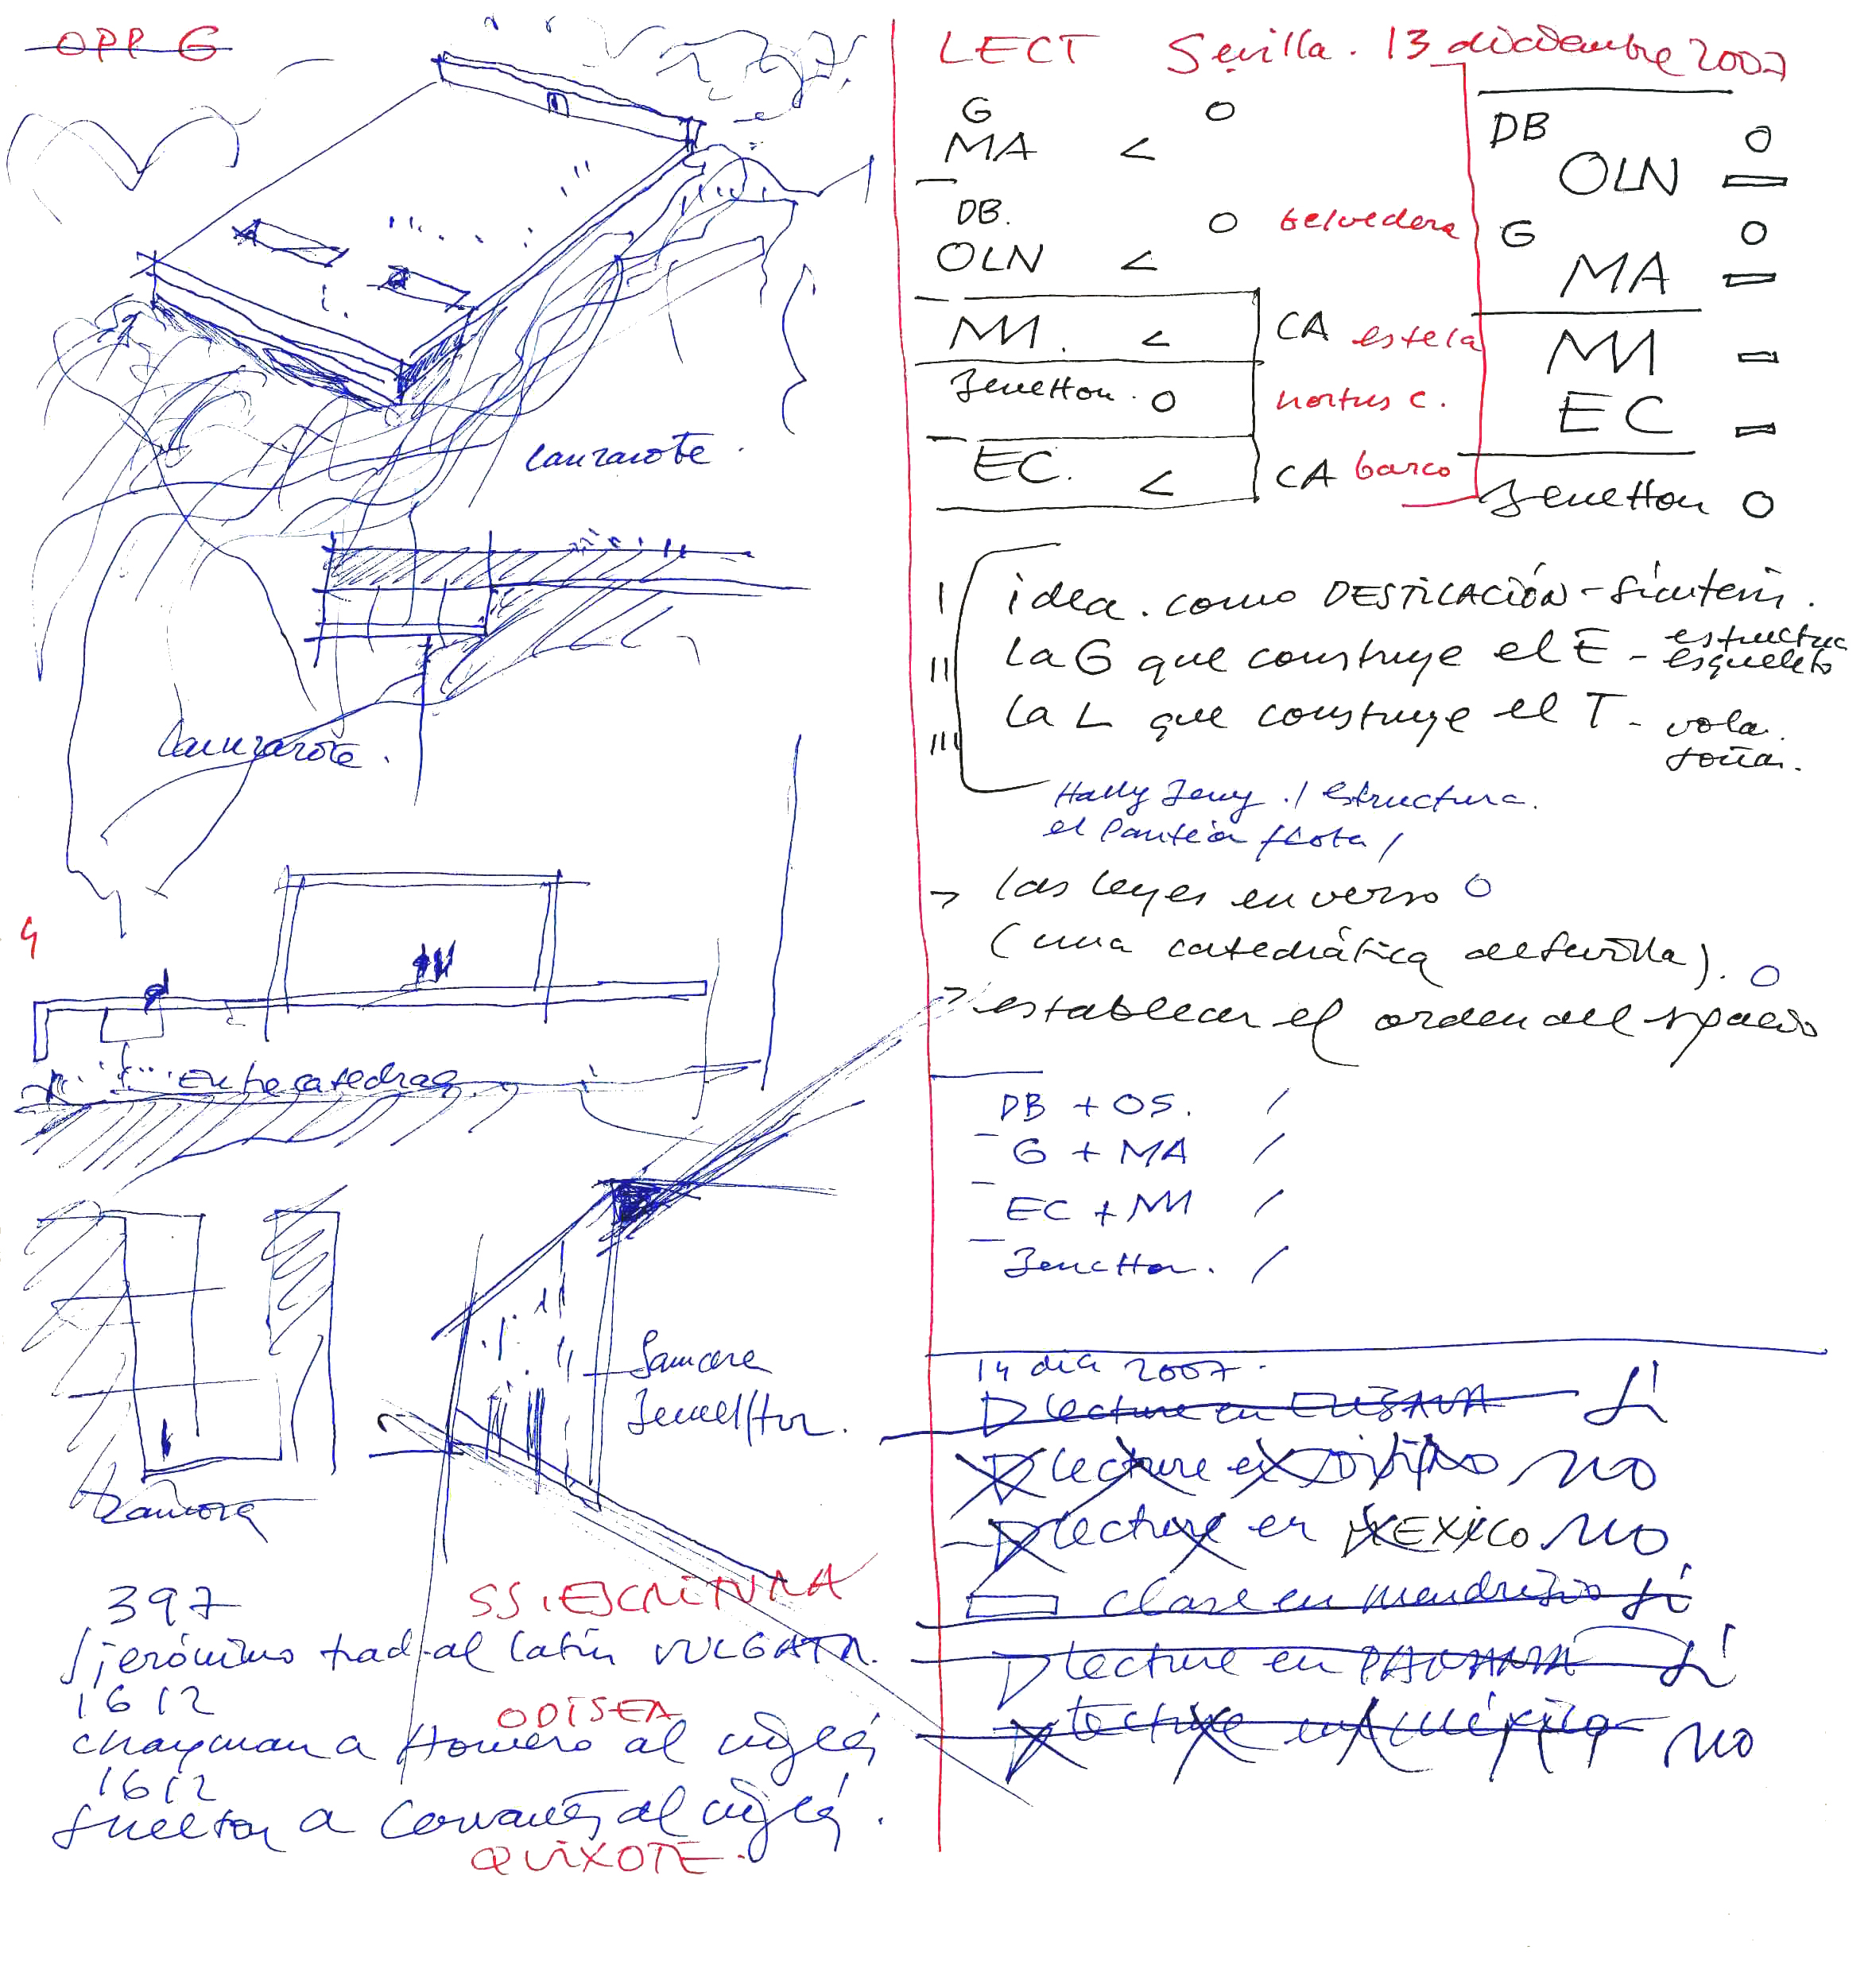 OPP G
Lanzarote.
Lanzarote.
Entrecatedrag
Zamora
397
SS. ESCRITURA
S jerónimo trad. al latín VULGATA.
1612
ODISEA
Chapman a Homero al inglés
1612
Suelton a Cervantes al inglés.
QUIXOTE.
LECT Sevilla. 13 diciembre 2007
G O
MA <
DB. O belvedere
OLN <
MM. < CA estela
Benetton. O hortus c.
EC. < CA barco
DB O
OLN
G O
MA
MM
EC
Benetton O
I idea. como DESTILACIÓN - Síntesis.
II La G que construye el E - estructura esqueleto
III La L que construye el T - volar. soñar.
estructura.
el Panteón flota /
las leyes en verso O
(una catedrática de Sevilla). O
establecer el orden del espacio
DB + OS. /
G + MA /
EC + MM /
Benetton. /
14 dic 2007.
lecture en ELISAVA sí
lecture en NO
lecture en MEXICO NO
clase en Mendrisio sí
lecture en PANAMÁ sí
lecture en México NO